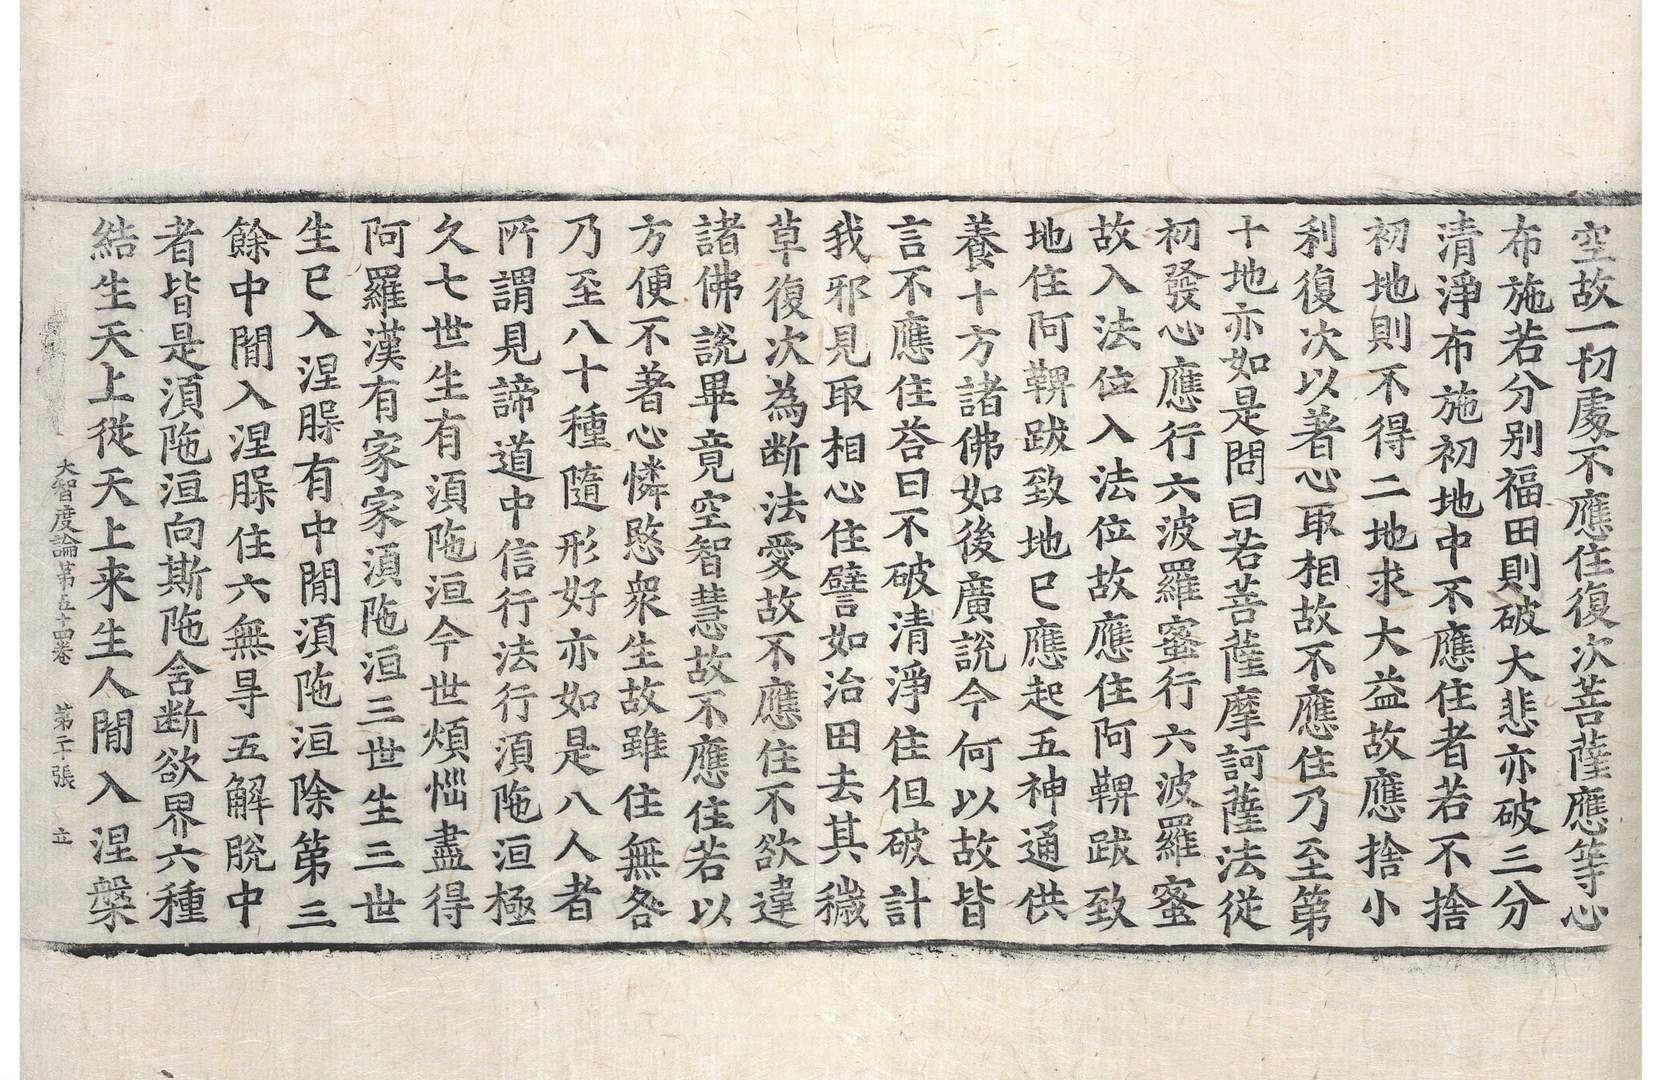 空故一切處不應住復次菩薩應等心
布施若分別福田則破大悲亦破三分
清淨布施初地中不應住者若不捨
初地則不得二地求大益故應捨小
利復次以著心取相故不應住乃至第
十地亦如是問曰若菩薩摩訶薩法從
初發心應行六波羅蜜行六波羅蜜
故入法位入法位故應住阿鞞跋致
地住阿鞞跋致地已應起五神通供
養十方諸佛如後廣說今何以故皆
言不應住荅曰不破清淨住但破計
我邪見取相心住譬如治田去其穢
草復次為断法愛故不應住不欲違
諸佛說畢竟空智慧故不應住若以
方便不著心憐愍衆生故雖住無咎
乃至八十種隨形好亦如是八人者
所謂見諦道中信行法行須陁洹極
久七世生有須陁洹今世煩惱盡得
阿羅漢有家家須陁洹三世生三世
生已入涅槃有中閒須陁洹除第三
餘中閒入涅槃住六無㝵五解脫中
者皆是須陁洹向斯陁含断欲界六種
結生天上從天上来生人閒入涅槃
大智度論第五十四卷 第二十張 立